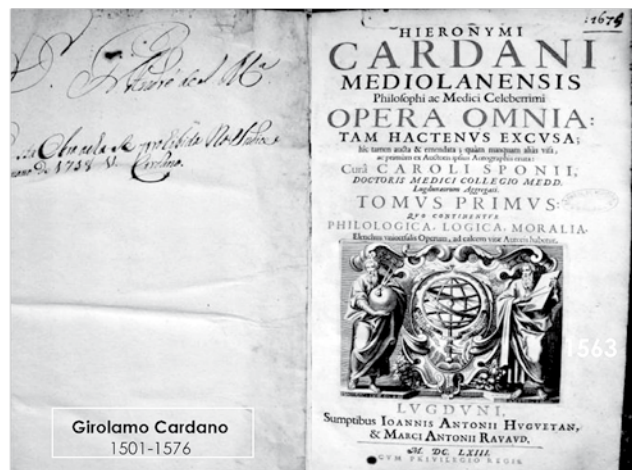 HIERONYMI
CARDANI
MEDIOLANENSIS
Philosophi ac Medici Celeberrimi
OPERA OMNIA:
TAM HACTENVS EXCVSA;
hic tamen aucta & emendata; quàm nunquam aliàs visa,
ac primùm ex Auctoris ipsius Autographis eruta:
Curâ CAROLI SPONII,
DOCTORIS MEDICI COLLEGIO MEDD.
Lugdunæorum Aggregati.
TOMVS PRIMVS:
QVO CONTINENTVR
PHILOLOGICA, LOGICA, MORALIA.
Elenchus vniuersalis Operum, ad calcem vitæ Autoris habetur.
1563
LVGDVNI,
Sumptibus IOANNIS ANTONII HVGVETAN,
& MARCI ANTONII RAVAVD.
M. DC. LXIII.
CVM PRIVILEGIO REGIS.
Girolamo Cardano
1501-1576